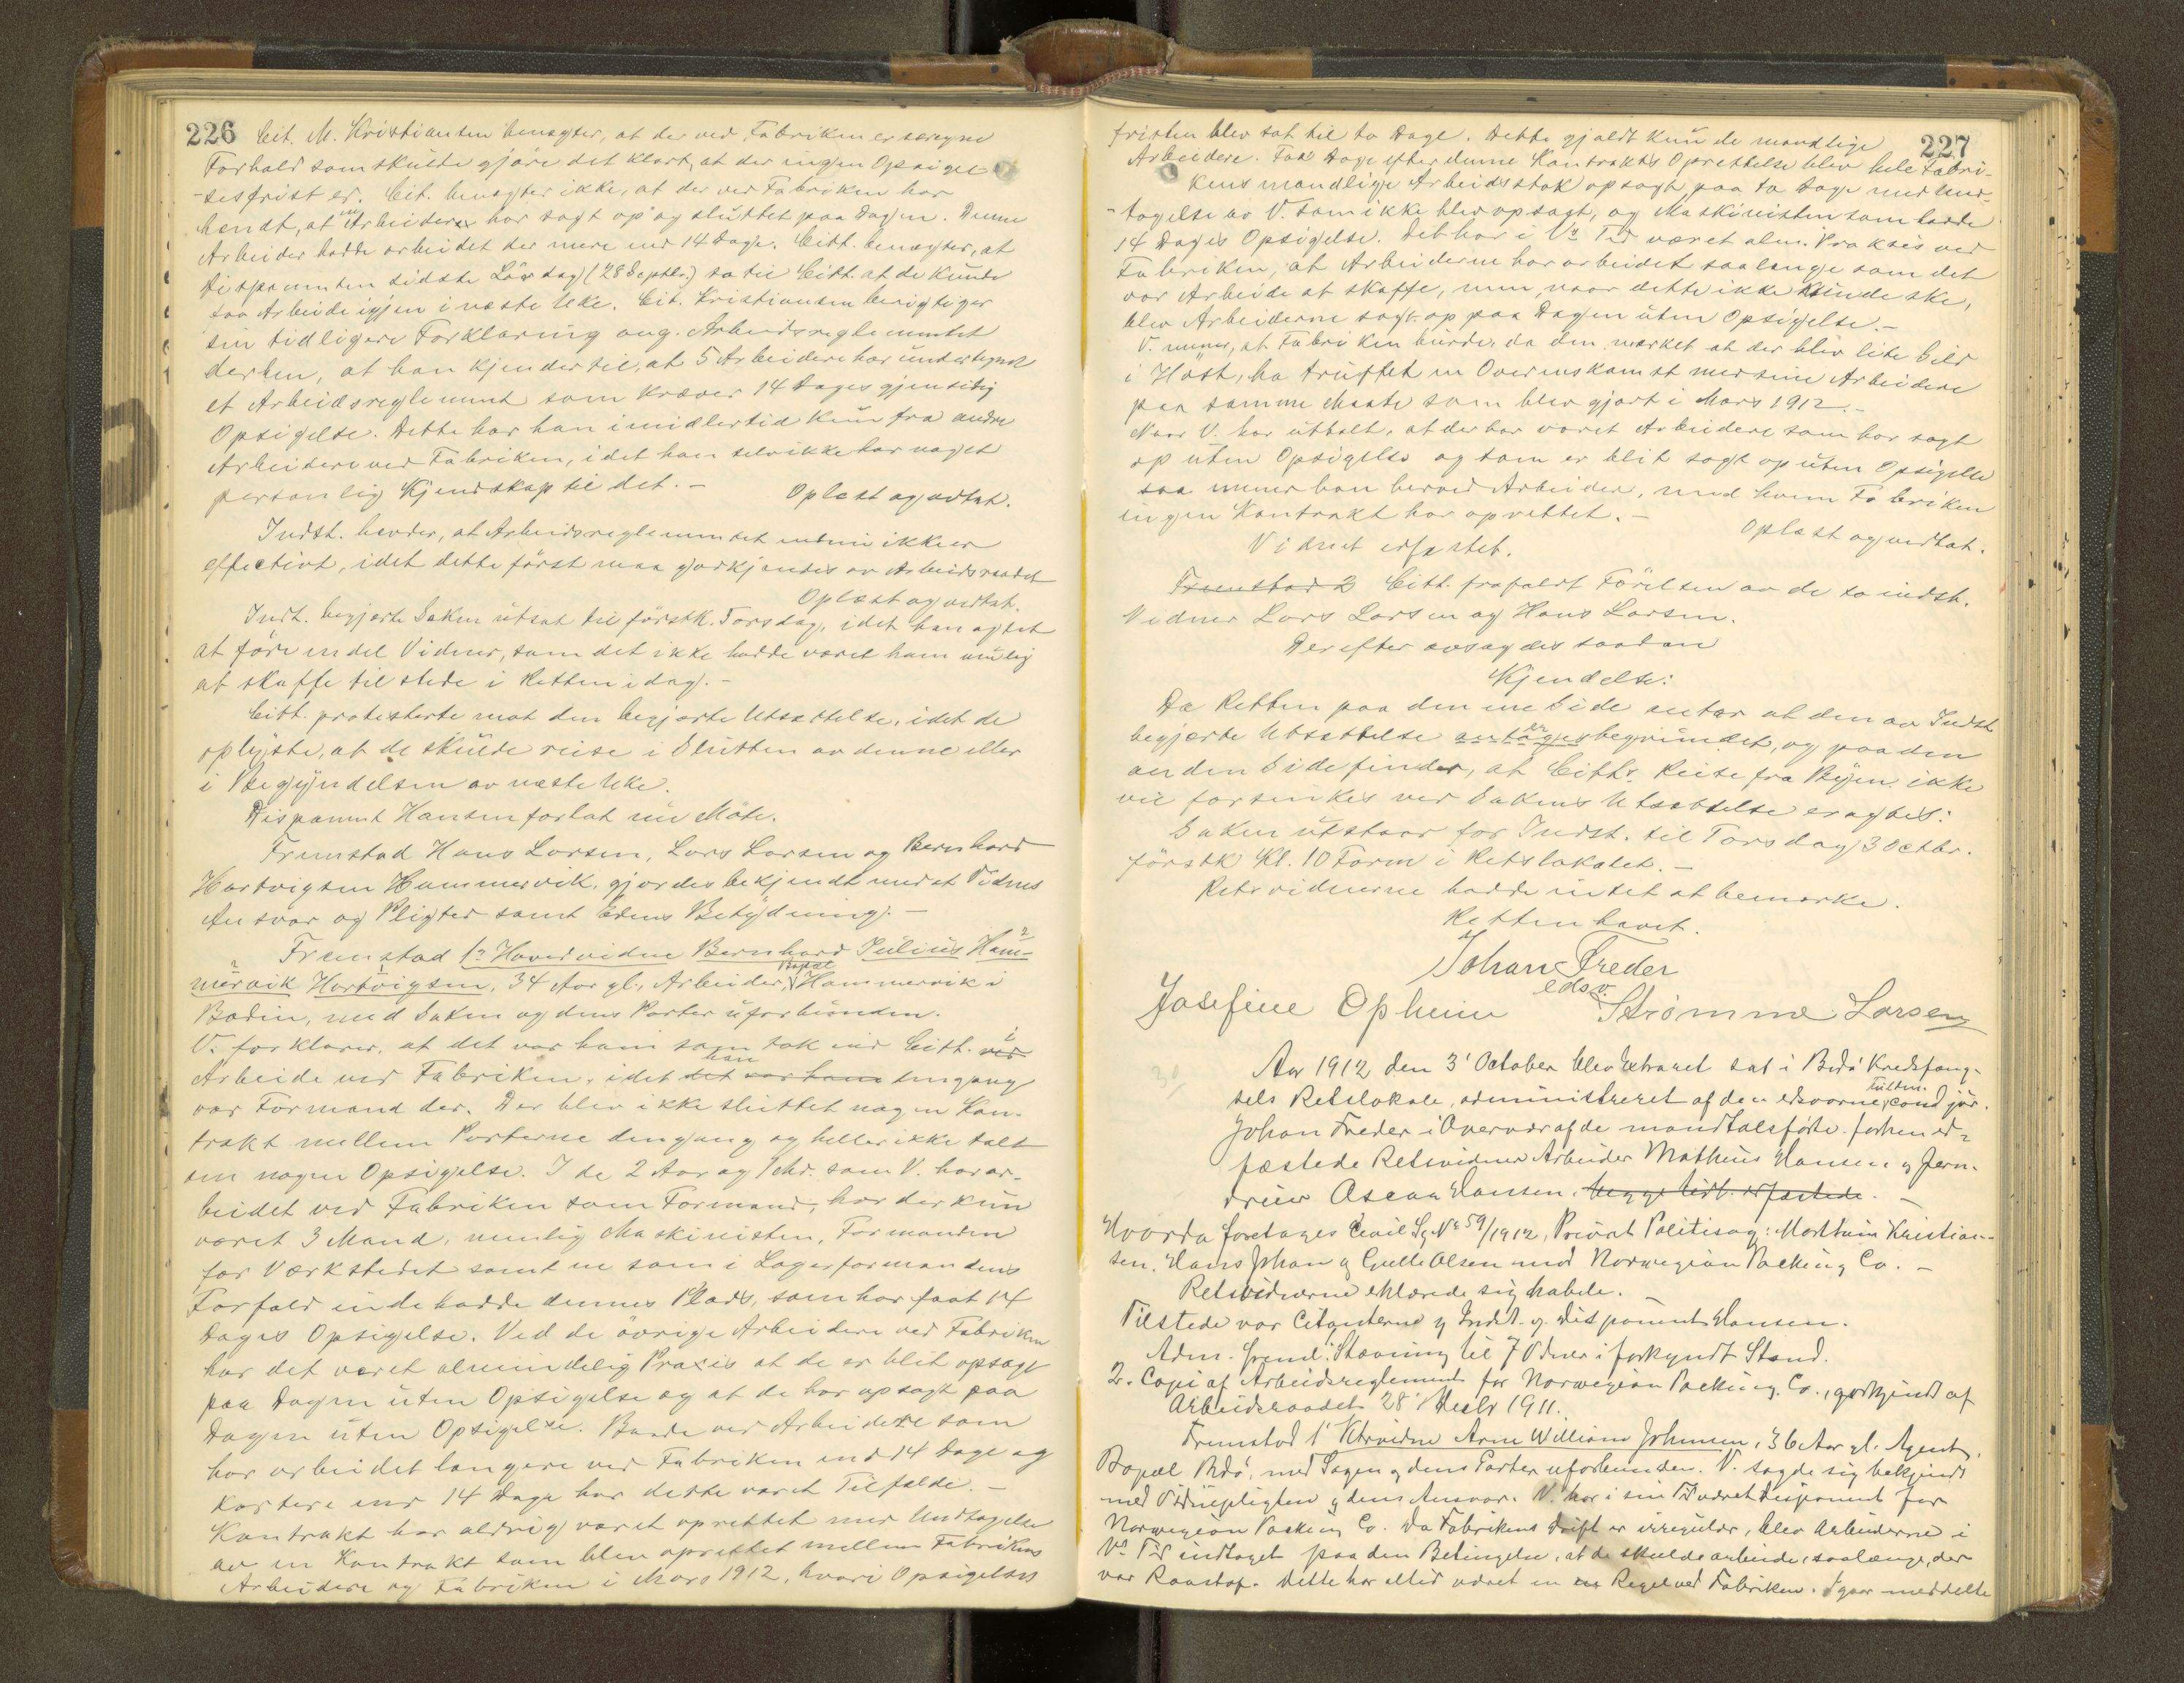 226
Cit. M. Kristiansen benegter, at der ved Fabriken er saregne
Forhold som skulde gjöre det klart, at der ingen Opsigel-
-sesfrist er. Cit. benegter ikke, at der ved Fabriken har
hendt, at en Arbeider har sagt op og sluttet paa Dagen. Denne
Arbeider hadde arbeidet der mere end 14 Dage. Citt. benegter, at
Disponenten sidste Lördag (28 Septbr.) sa til Citt. at de kunde
faa Arbeide igjen i næste Uke. Cit. Kristiansen berigtiger
sin tidligere Forklaring ang. Arbeidsreglementet
derhen, at han kjender til, at 5 Arbeidere har undertegnet
et Arbeidsreglement som kræver 14 Dages gjensidig
Opsigelse. Dette har han imidlertid kun fra andre
Arbeidere ved Fabriken, idet han selv ikke har noget
personlig Kjendskap til det. –
Oplæst og vedtat.
Indst. hevder, at Arbeidsreglementet ikke er
effectivt, idet dette först maa godkjendes av Arbeidsraadet
Oplæst og vedtat.
Indst. begjærte Saken utsat til förstk. Torsdag, idet han agtet
at före endel Vidner, som det ikke hadde været ham mulig
at skaffe tilstede i Retten idag. –
Citt. protesterte mot den begjærte Utsættelse, idet de
oplyste, at de skulde reise i Slutten av denne eller
i Begyndelsen av næste Uke.
Disponent Hansen forlot nu Möte.
Fremstod Hans Larsen, Lars Larsen og Bernhard
Hartvigsen Hammervik, gjordes bekjendt med et Vidnes
Ansvar og Pligter samt Edens Betydning. –
Fremstod 1ste Hovedvidne Bernhard Julius Ham-
mervik Hartvigsen, 34 Aar gl., Arbeider, Bopæl Hammervik i
Bodin, med Saken og dens Parter uforbunden.
V. forklarer, at det var ham som tok ind Citt. i
Arbeide ved Fabriken, idet han dengang
var Formand der. Der blev ikke sluttet nogen Kon-
trakt mellem Parterne dengang og heller ikke talt
om nogen Opsigelse. I de 2 Aar og 7 Mdr. som V. har ar-
beidet ved Fabriken som Formand, har der kun
været 3 Mand, nemlig Maskinisten, Formanden
for Værkstedet samt en som i Lagerformandens
Forfald indehadde dennes Plads, som har faat 14
Dages Opsigelse. Ved de övrige Arbeidere ved Fabriken
har det været almindelig Praxis at de er blit opsagt
paa Dagen uten Opsigelse og at de har opsagt paa
Dagen uten Opsigelse. Baade ved Arbeidere som
har arbeidet længere ved Fabriken end 14 Dage og
kortere end 14 Dage har dette været Tilfælde. –
Kontrakt har aldrig været oprettet med Undtagelse
av en Kontrakt som blev oprettet mellem Fabrikens
Arbeidere og Fabriken i Mars 1912, hvori Opsigelses
227
fristen blev sat til to Dage. Dette gjaldt kun de mandlige
Arbeidere. Faa Dage efter denne Kontrakts Oprettelse blev hele Fabri-
kens mandlige Arbeidsstok opsagt paa to Dage med Und-
-tagelse av V. som ikke blev opsagt, og Maskinisten som hadde
14 Dages Opsigelse. Det har i V's Tid været alm. Praksis ved
Fabriken, at Arbeiderne har arbeidet saalænge som det
var Arbeide at skaffe, men, naar dette ikke kunde ske,
blev Arbeiderne sagt op paa Dagen uten Opsigelse. –
V. mener, at Fabriken burde, da den merket at der blev lite Sild
i Höst, ha truffet en Overenskomst med sine Arbeidere
paa samme Maate som blev gjort i Mars 1912. –
Naar V. har uttalt, at der har været Arbeidere som har sagt
op uten Opsigelse og som er blit sagt op uten Opsigelse
saa mener han herved Arbeidere, med hvem Fabriken
ingen Kontrakt har oprettet. –
Oplæst og vedtat.
Vidnet edfæstet.
Fremstod 2 Citt. frafaldt Förelsen av de to indst.
Vidner Lars Larsen og Hans Larsen.
Derefter avsagdes saadan
Kjendelse:
Da Retten paa den ene Side antar at den av Indst
begjærte Utsættelse er begrundet, og paa den
anden Side finder, at Citts. Reise fra Byen ikke
vil forsinkes ved Sakens Utsættelse eragtes:
Saken utstaar for Indst. til Torsdag 3 Octbr.
förstk Kl. 10 Form i Retslokalet. –
Retsvidnerne hadde intet at bemerke.
Retten hævet.
Johan Freder
edsv.
Josefine Opheim Strømme Larsen
Aar 1912 den 3' October blev Extraret sat i Bodö Kredsfæng-
sels Retslokale, administreret af den edsvorne fuldm. cand jur.
Johan Freder i Overvær af de mandtalsførte forhen ed-
fæstede Retsvidner Arbeider Mathius Hansen og Jern-
dreier Oscar Hansen, begge lidt. edfæstede. –
Hvorda foretages Civil Sg. No 59/1912, Privat Politisag: Marthin Kristian-
sen, Hans Johan og Gulle Olsen mod Norwegian Packing Co. –
Retsvidnerne erklærede sig habile.
Tilstede var Citanterne og Indst. v. Disponent Hansen.
Adm. freml. 1. Stævning til 7 Vidner i forkyndt Stand.
2. Copi af Arbeidsreglement for Norwegian Packing Co., godkjendt af
Arbeidsraadet 28' 1911.
Fremstod 1' Ktrvidne Arne William Johnsen, 36 Aar gl. Agent,
Bopæl Bodö, med Sagen og dens Parter uforbunden. V. sagde sig bekjendt
med Vidnepligten og dens Ansvar. V. har i sin Tid været Disponent for
Norwegian Packing Co. Da Fabrikens Drift er irregulær, blev Arbeiderne i
V's Tid indtaget paa den Betingelse, at de skulde arbeide, saalænge, der
var Raastof. Dette har altid været en Regel ved Fabriken. Igaar meddelte